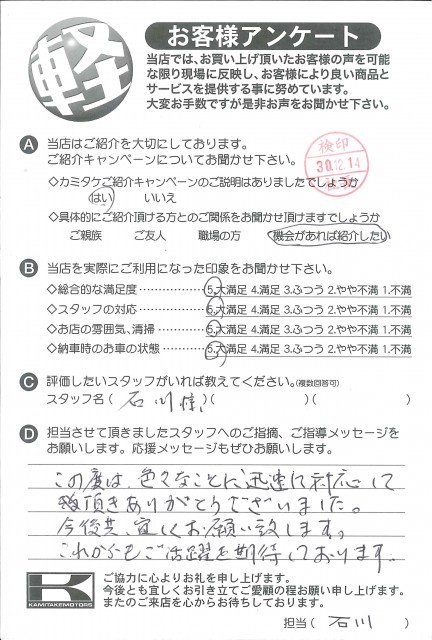 軽
お客様アンケート
当店では、お買い上げ頂いたお客様の声を可能
な限り現場に反映し、お客様により良い商品と
サービスを提供する事に努めています。
大変お手数ですが是非お声をお聞かせ下さい。
A 当店はご紹介を大切にしております。
ご紹介キャンペーンについてお聞かせ下さい。
検印
30.12.14
◇カミタケご紹介キャンペーンのご説明はありましたでしょうか
はい いいえ
◇具体的にご紹介頂ける方とのご関係をお聞かせ頂けますでしょうか
ご親族 ご友人 職場の方 機会があれば紹介したい
B 当店を実際にご利用になった印象をお聞かせ下さい。
◇総合的な満足度 5.大満足 4.満足 3.ふつう 2.やや不満 1.不満
◇スタッフの対応 5.大満足 4.満足 3.ふつう 2.やや不満 1.不満
◇お店の雰囲気、清掃 5.大満足 4.満足 3.ふつう 2.やや不満 1.不満
◇納車時のお車の状態 5.大満足 4.満足 3.ふつう 2.やや不満 1.不満
C 評価したいスタッフがいれば教えてください。(複数回答可)
スタッフ名( 石川様 )( )( )
D 担当させて頂きましたスタッフへのご指摘、ご指導メッセージを
お願いします。応援メッセージもぜひお願いします。
この度は、色々なことに迅速に対応して
頂きありがとうございました。
今後共、宜しくお願い致します。
これからもご活躍を期待しております。
KAMITAKEMOTORS
ご協力に心よりお礼を申し上げます。
今後とも宜しくお引き立てご愛顧の程お願い申し上げます。
またのご来店を心からお待ちしております。
担当( 石川 )